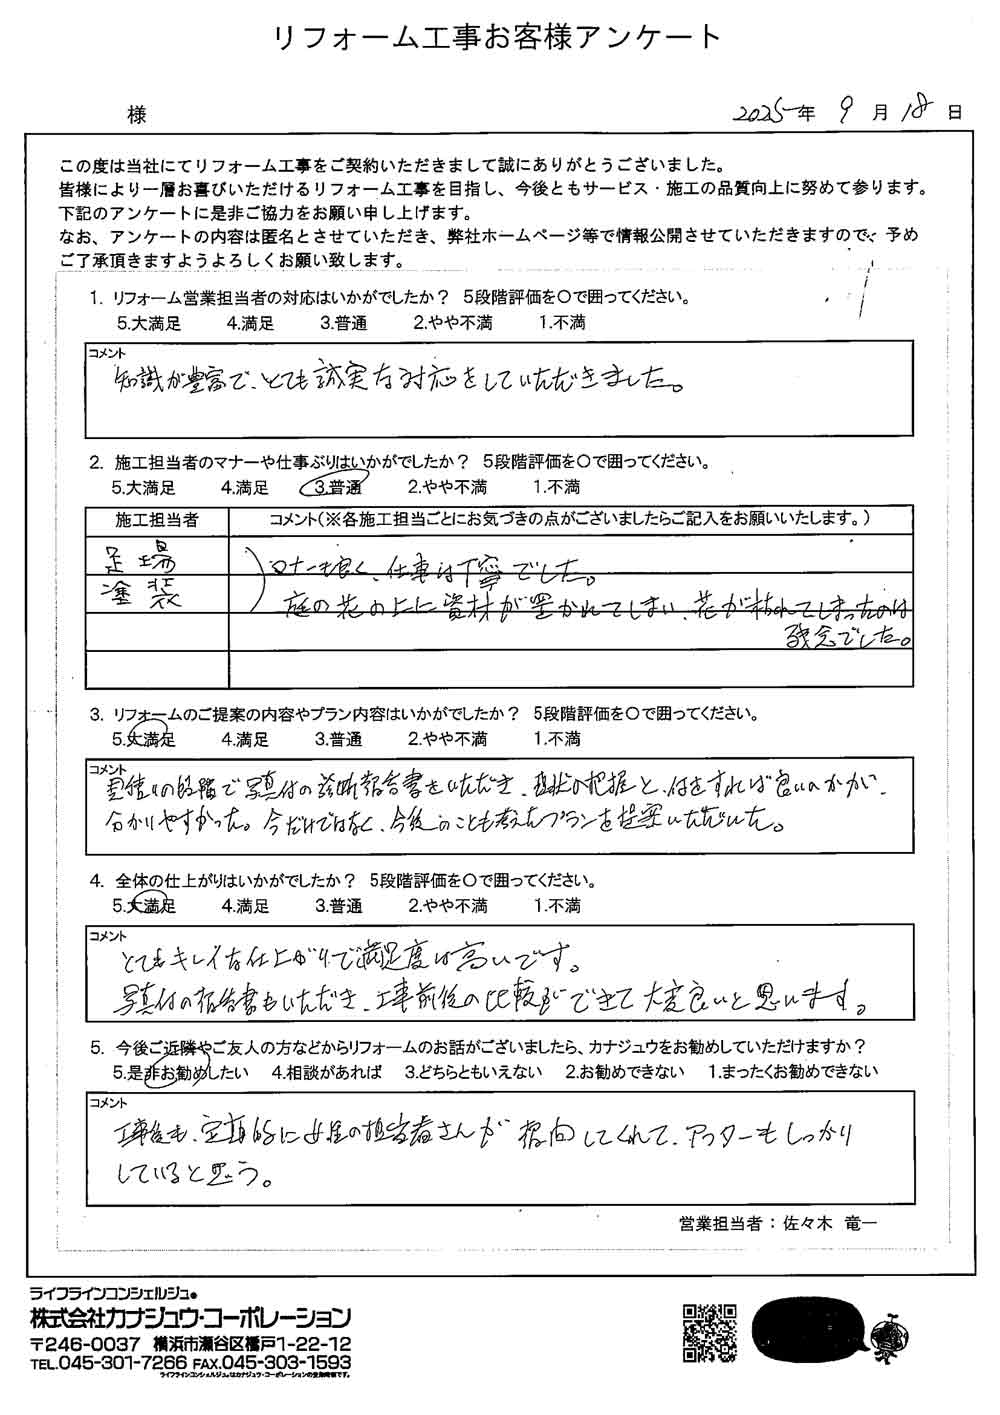 リフォーム工事お客様アンケート
様
2025年 9月 18日
この度は当社にてリフォーム工事をご契約いただきまして誠にありがとうございました。
皆様により一層お喜びいただけるリフォーム工事を目指し、今後ともサービス・施工の品質向上に努めて参ります。
下記のアンケートに是非ご協力をお願い申し上げます。
なお、アンケートの内容は匿名とさせていただき、弊社ホームページ等で情報公開させていただきますので、予め
ご了承頂きますようよろしくお願い致します。
1. リフォーム営業担当者の対応はいかがでしたか？ 5段階評価を〇で囲ってください。
5.大満足 4.満足 3.普通 2.やや不満 1.不満
コメント
知識が豊富で、とても誠実な対応をしていただきました。
2. 施工担当者のマナーや仕事ぶりはいかがでしたか？ 5段階評価を〇で囲ってください。
5.大満足 4.満足 3.普通 2.やや不満 1.不満
施工担当者 コメント(※各施工担当ごとにお気づきの点がございましたらご記入をお願いいたします。)
足場
塗装
マナーも良く、仕事は丁寧でした。
庭の花の上に資材が置かれてしまい、花が枯れてしまったのは
残念でした。
3. リフォームのご提案の内容やプラン内容はいかがでしたか？ 5段階評価を〇で囲ってください。
5.大満足 4.満足 3.普通 2.やや不満 1.不満
コメント
見積りの段階で写真付の診断報告書をいただき、現状の把握と、何をすれば良いのかが、
分かりやすかった。今だけではなく、今後のことも考えたプランを提案いただいた。
4. 全体の仕上がりはいかがでしたか？ 5段階評価を〇で囲ってください。
5.大満足 4.満足 3.普通 2.やや不満 1.不満
コメント
とてもキレイな仕上がりで満足度は高いです。
写真付の報告書もいただき、工事前後の比較ができて大変良いと思います。
5. 今後ご近隣やご友人の方などからリフォームのお話がございましたら、カナジュウをお勧めしていただけますか？
5.是非お勧めしたい 4.相談があれば 3.どちらともいえない 2.お勧めできない 1.まったくお勧めできない
コメント
工事後も、定期的に の担当者さんが 訪問してくれて、アフターもしっかり
していると思う。
営業担当者：佐々木 竜一
ライフラインコンシェルジュ®
株式会社カナジュウ・コーポレーション
〒246-0037 横浜市瀬谷区橋戸1-22-12
TEL.045-301-7266 FAX.045-303-1593
ライフラインコンシェルジュ®はカナジュウ・コーポレーションの登録商標です。